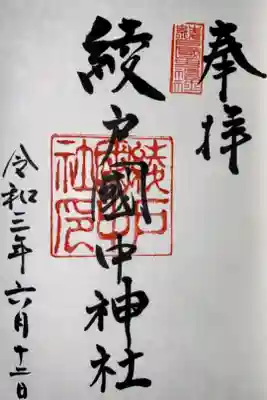 奉拝
綾戸國中神社
令和三年六月十二日